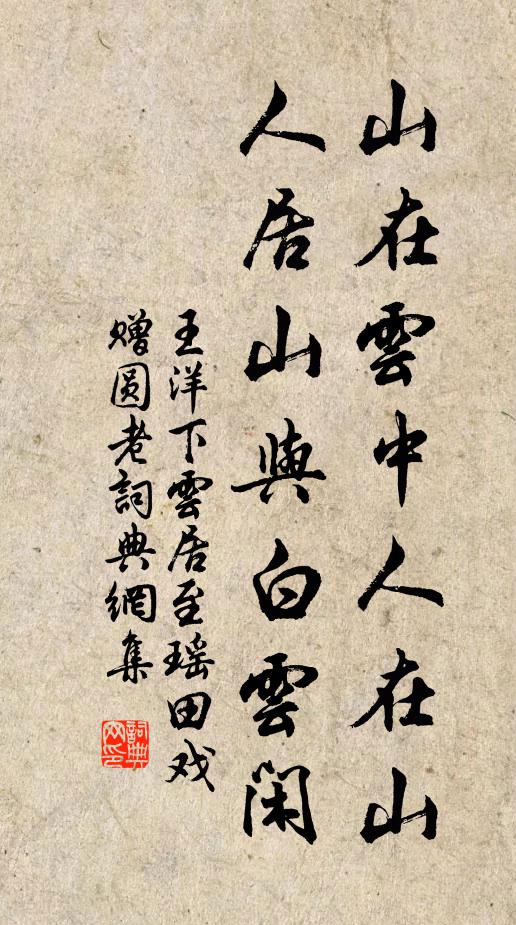 山在雲中人在山
人居山與白雲閑
王洋下雲居至瑶田戏
赠圆老詞典網集
詞典
网印